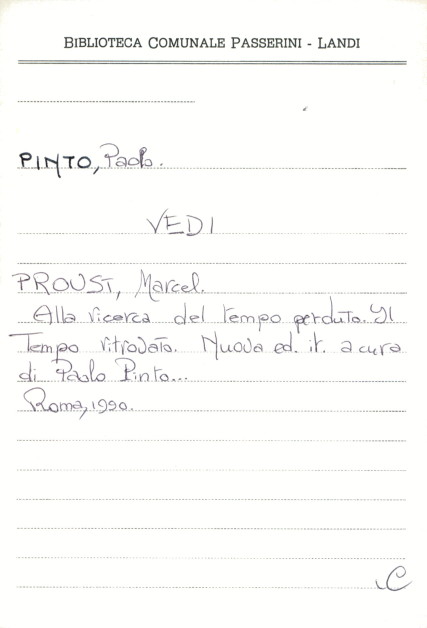 BIBLIOTECA COMUNALE PASSERINI - LANDI
PINTO, Paolo.
VEDI
PROUST, Marcel.
Alla ricerca del tempo perduto. Il
Tempo ritrovato. Nuova ed. it. a cura
di Paolo Pinto...
Roma, 1990.
C